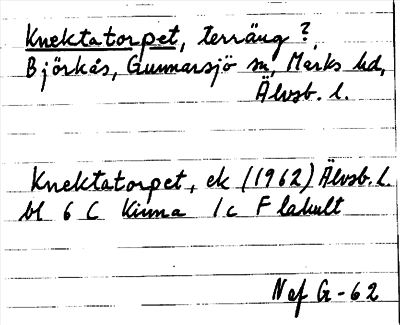 Knektatorpet, terräng ?
Björkås, Gunnarsjö sn, Marks hd,
Älvsb. l.
Knektatorpet, ek (1962) Älvsb. l.
bl 6 C Kinna 1c Flahult
Nef G-62